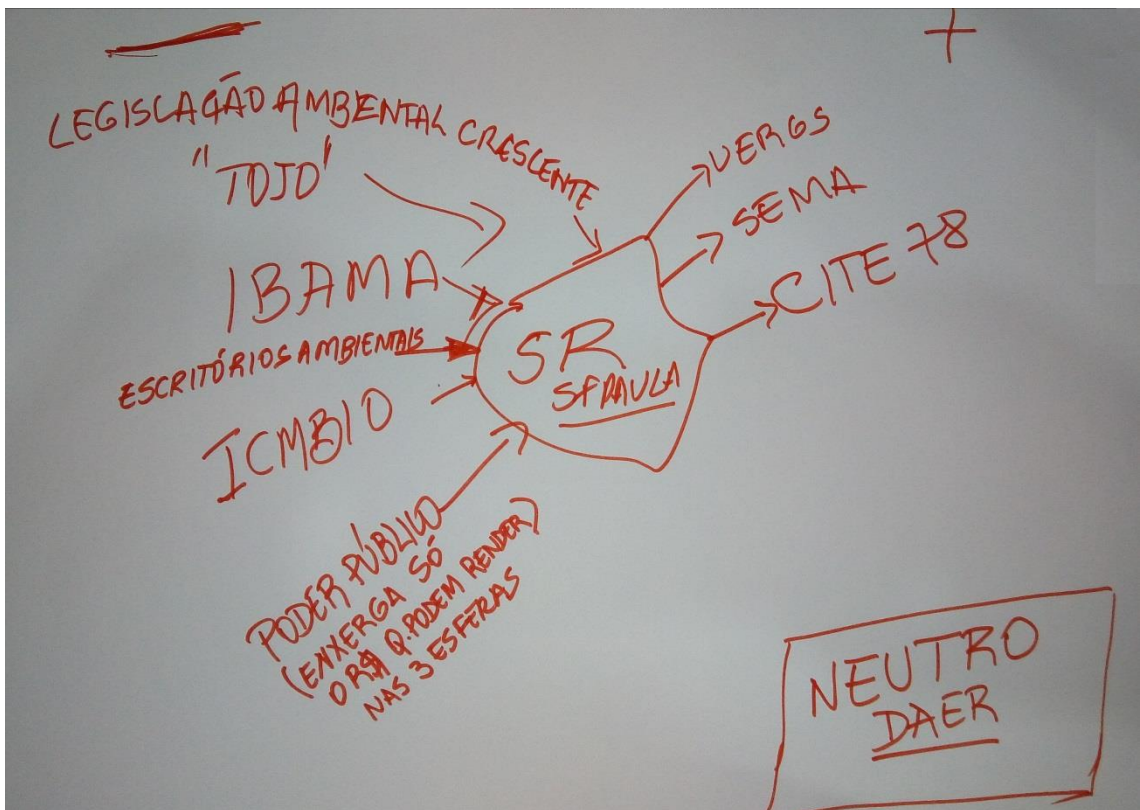 +
LEGISLAÇÃO AMBIENTAL CRESCENTE
"TOJO"
IBAMA
ESCRITÓRIOS AMBIENTAIS
ICMBIO
PODER PÚBLICO
(ENXERGA SÓ
O R$ Q. PODEM RENDER)
NAS 3 ESFERAS
SR
SFPAULA
VERGS
SEMA
CITE 78
NEUTRO
DAER